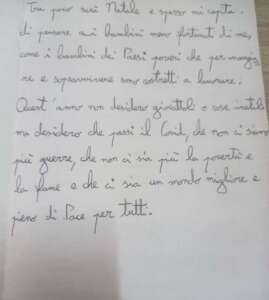 Tra poco sarà Natale e spesso mi capita
di pensare ai bambini meno fortunati di me,
come i bambini dei Paesi poveri che per mangia
re e sopravvivere sono costretti a lavorare.
Quest'anno non desidero giocattoli o cose inutili
ma desidero che passi il Covid, che non ci siano
più guerre, che non ci sia più la povertà e
la fame e che ci sia un mondo migliore e
pieno di Pace per tutti.